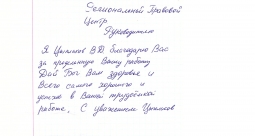 Региональный Правовой
Центр
Руководителю
Я Цыпляков ВД благодарю Вас
за проделанную Вашу работу
Дай Бог Вам здоровья и
Всего самого хорошего и
успехов в Вашей трудовой
работе. С уважением Цыпляков